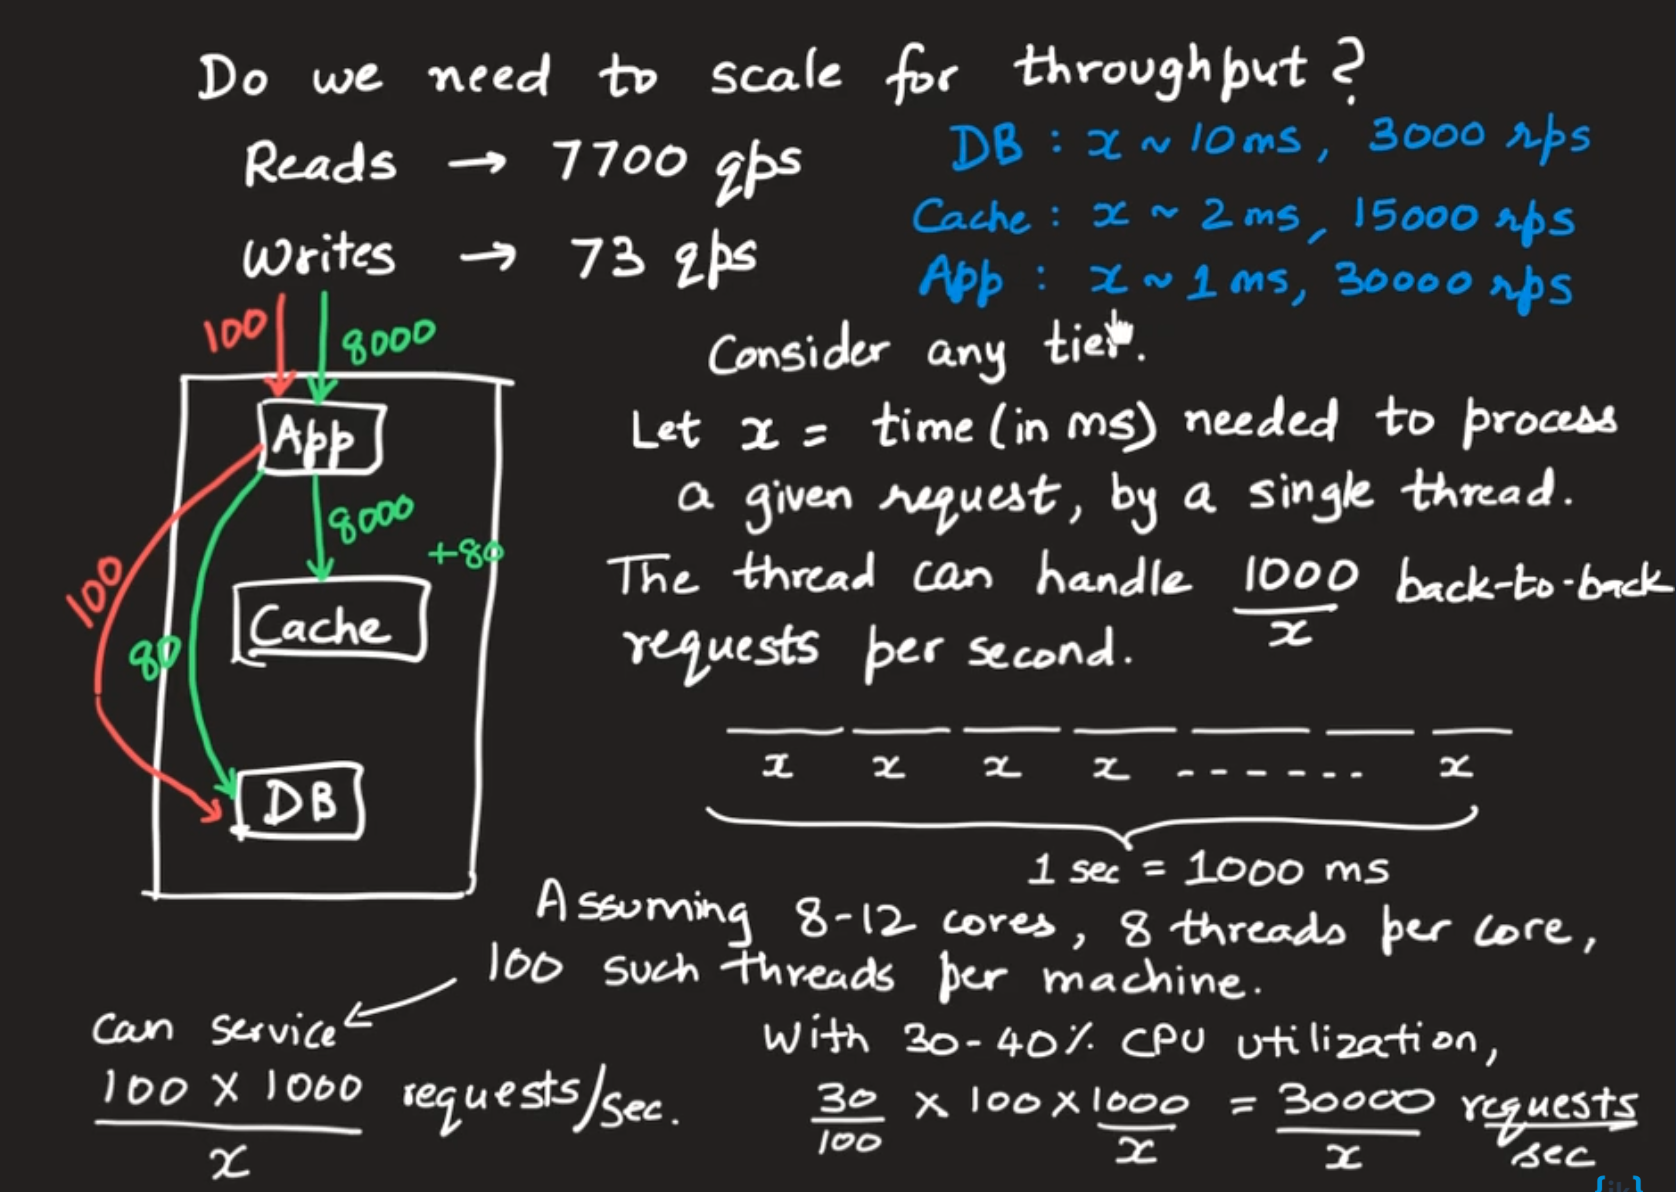 Do we need to scale for throughput?
Reads → 7700 qps
Writes → 73 qps
DB : x ~ 10 ms, 3000 rps
Cache : x ~ 2 ms, 15000 rps
App : x ~ 1 ms, 30000 rps
100
8000
App
8000
+80
100
80
Cache
DB
Consider any tier.
Let x = time (in ms) needed to process
a given request, by a single thread.
The thread can handle 1000/x back-to-back
requests per second.
x x x x ------- x
1 sec = 1000 ms
Assuming 8-12 cores, 8 threads per core,
100 such threads per machine.
can service
100 X 1000 / x requests/sec.
With 30-40% CPU utilization,
30/100 × 100 × 1000/x = 30000/x requests/sec
{ik}